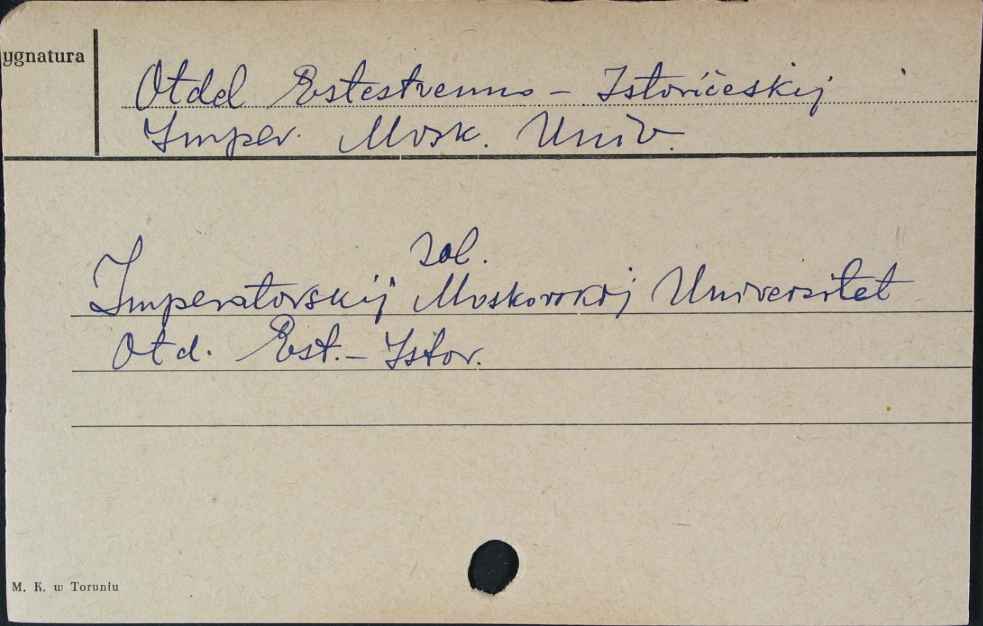 ygnatura
Otdel Estestvenno - Istoričeskij
Imper. Mosk. Univ.
zob.
Imperatorskij Moskovskij Universitet
Otd. Est. - Istor.
M. K. w Toruniu